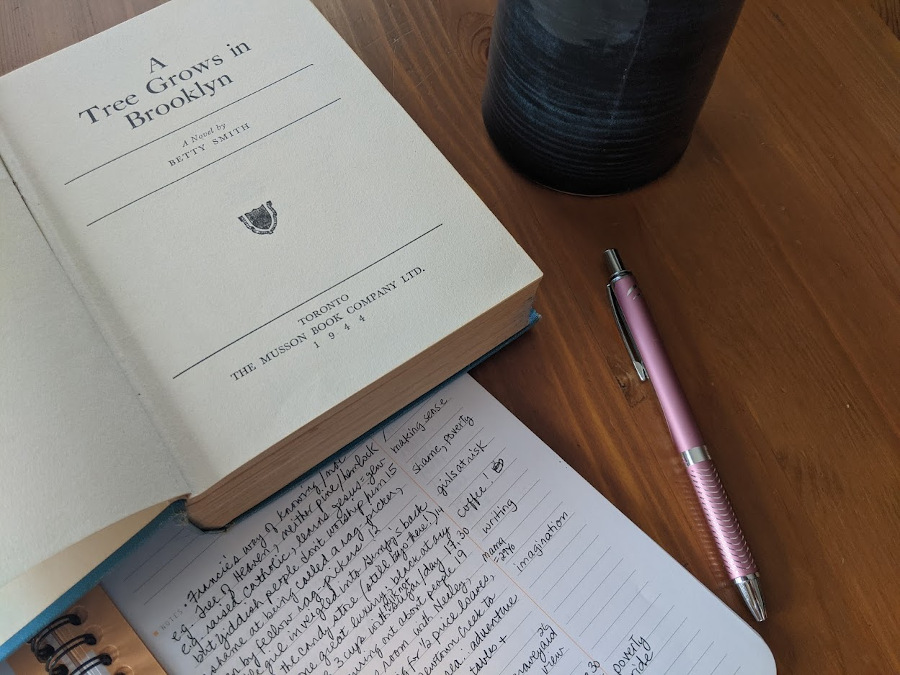 A
Tree Grows in
Brooklyn
A Novel by
BETTY SMITH
TORONTO
THE MUSSON BOOK COMPANY LTD.
1 9 4 4
NOTES
• Francie's way of knowing / not
e.g. Tree of Heaven, neither pine/hemlock
e.g. raised Catholic, learns Jesus = Jew
but Yiddish people don't worship him 15
shame at being called a rag picker,
by fellow rag pickers 12
girl inveigled into Gimpy's back
the candy store (still go there!) 14
one great luxury, black at day
3 cups with / day 17. 30
about people 19
room with Neeley,
for 1/2 price loaves,
Newtown Creek to
sea... adventure
tables +
making sense
shame, poverty
girls at risk
coffee!
writing
mang
imagination
graveyard
view
30
poverty